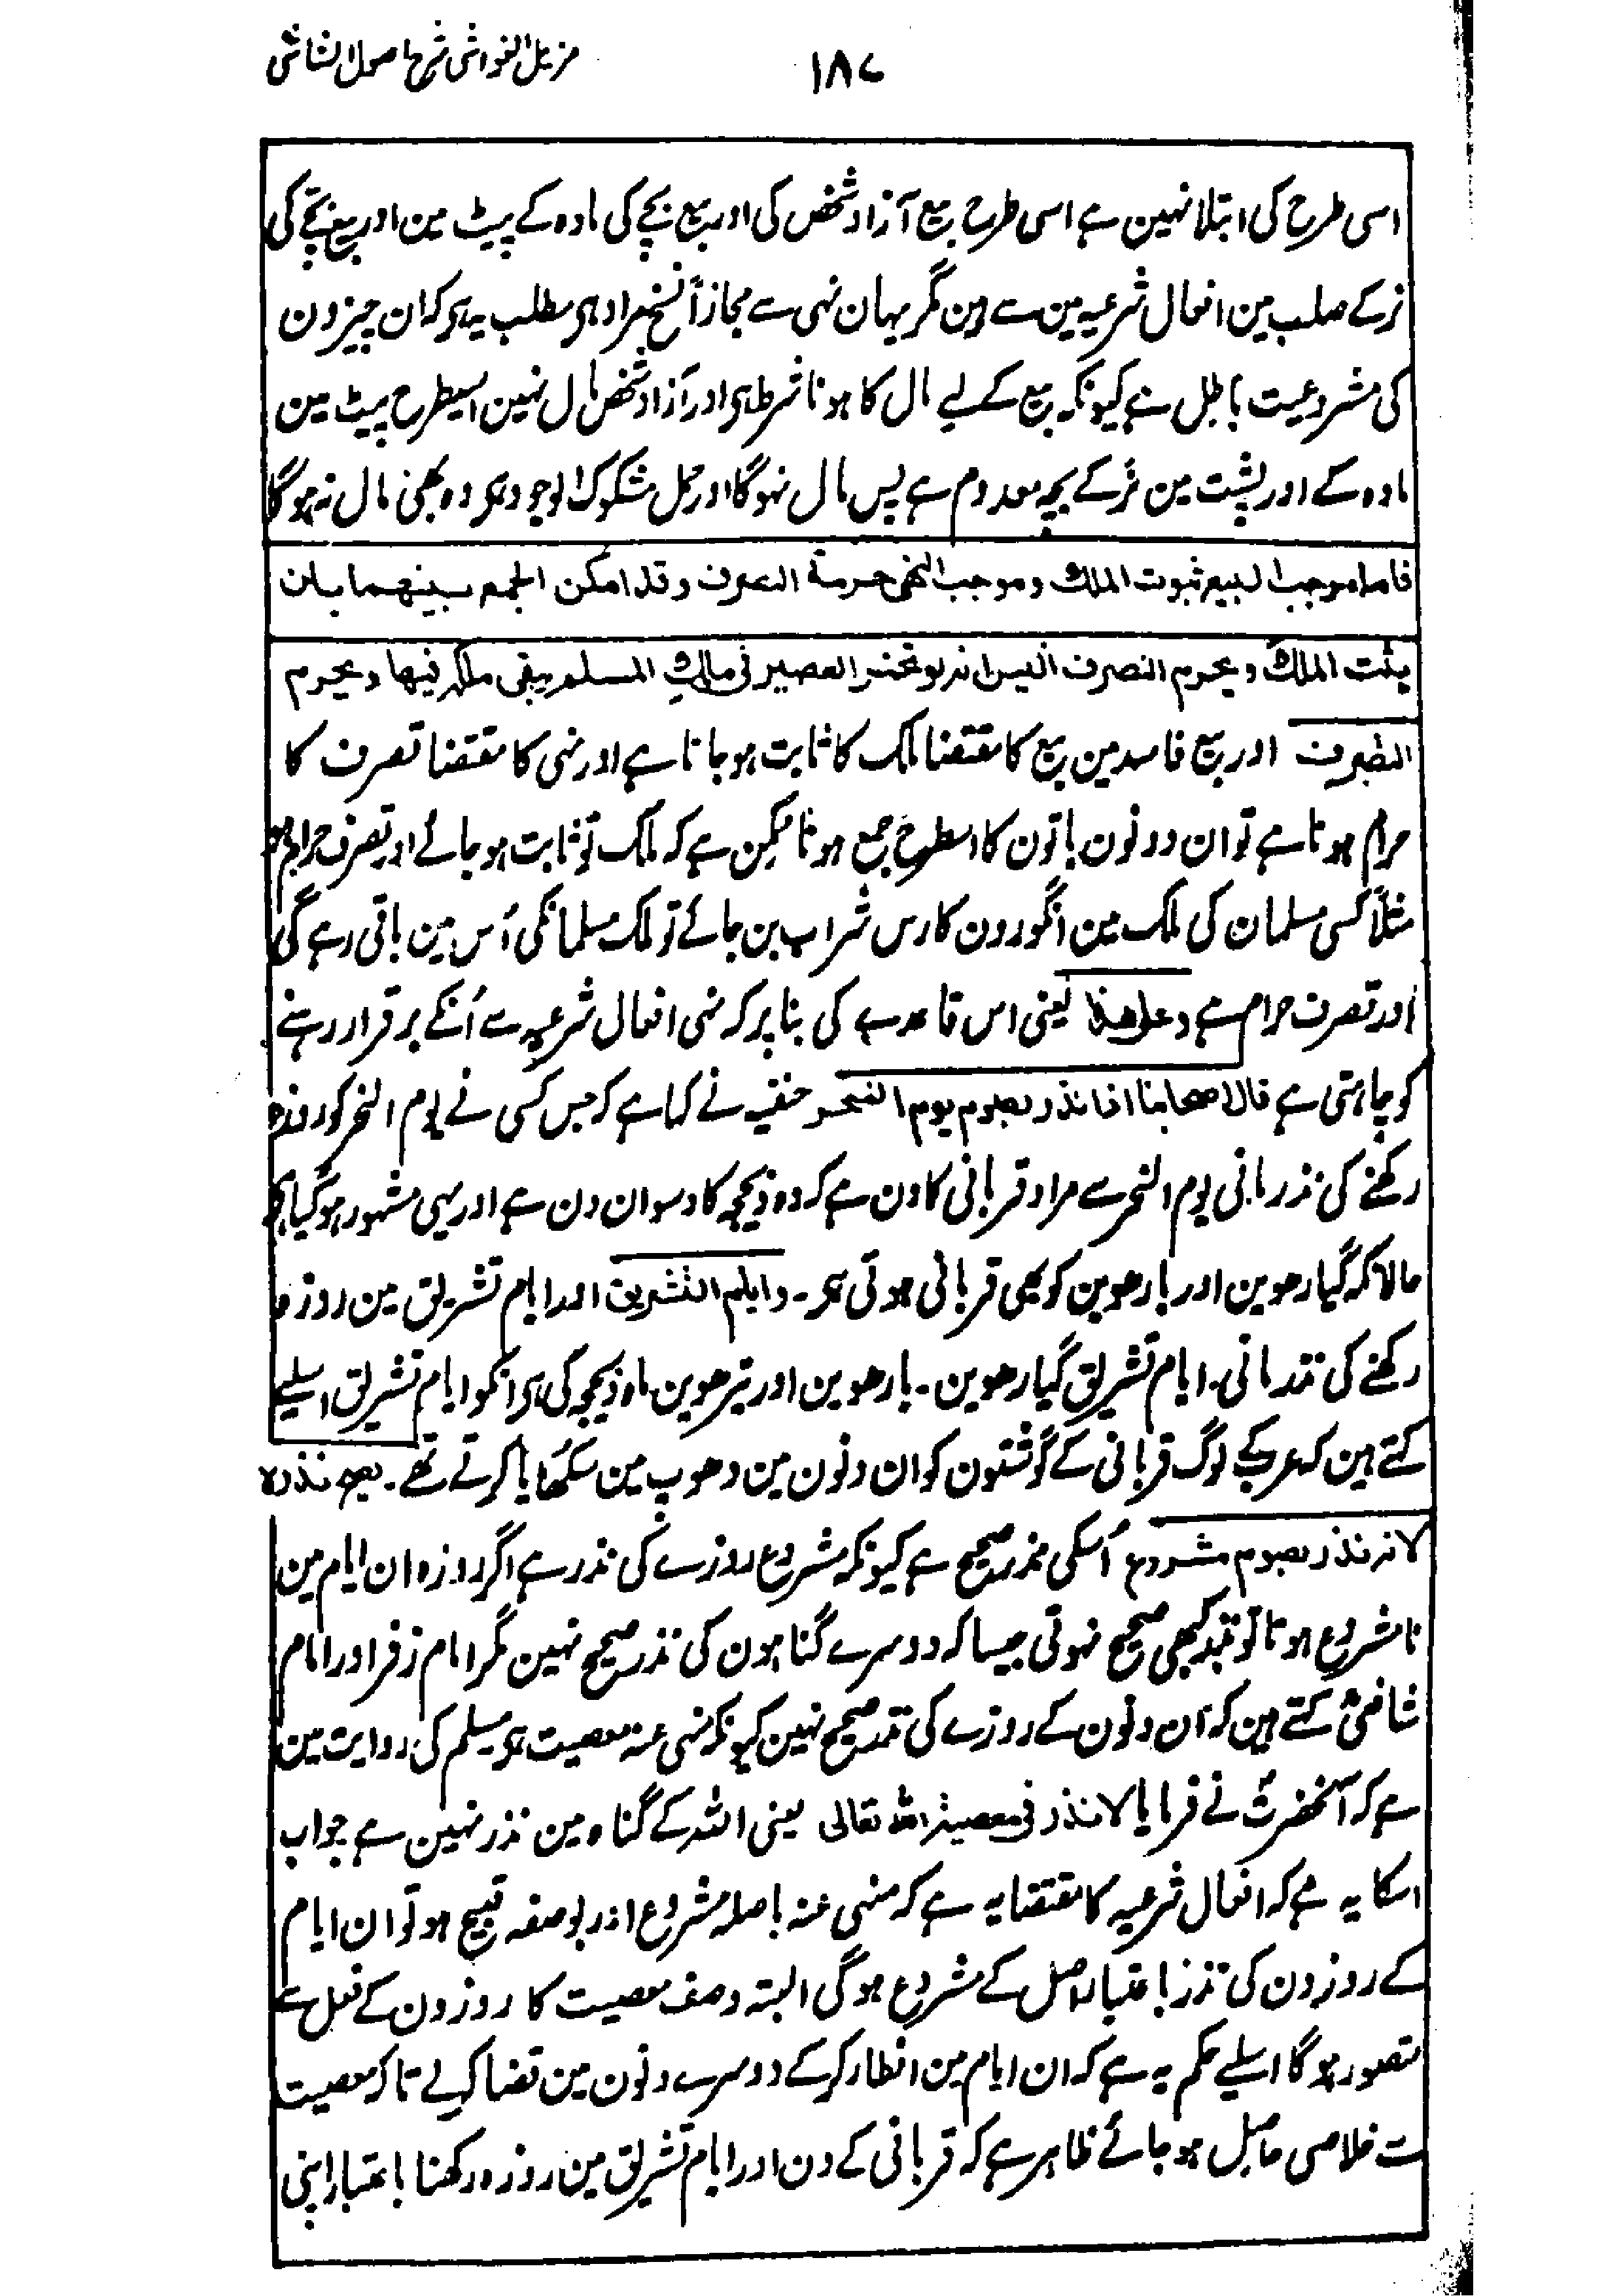 ۱۸۷ مزیل الغواشی شرح اصول الشاشی
اسی طرح کی ابتلا نہین ہے اسی طرح بیع آزاد شخص کی اور بیع بچے کی مادہ کے پیٹ مین اور بیع بچے کی
نر کے صلب مین افعال شرعیہ مین سے ہین مگر یہان نہی سے مجازاً نسخ مراد ہی مطلب یہ ہی کہ ان چیزون
کی مشروعیت باطل ہے کیونکہ بیع کے لیے مال کا ہونا شرط ہی اور آزاد شخص مال نہین اسیطرح پیٹ مین
مادہ کے اور پشت مین نر کے بچہ معدوم ہے پس مال نہوگا اور حمل مشکوک الوجود ہی وہ بھی مال نہ ہوگا
فاما موجب البیع ثبوت الملک وموجب النھی حرمة التصرف وقد امکن الجمع بینھما بان
یثبت الملک ویحرم التصرف الیس انہ لو تخمر العصیر فی ملک المسلم یبقی ملکہ فیھا ویحرم
التصرف اور بیع فاسد مین بیع کا مقتضا ملک کا ثابت ہو جانا ہے اور نہی کا مقتضا تصرف کا
حرام ہونا ہے تو ان دونون باتون کا اسطرح جمع ہونا ممکن ہے کہ ملک تو ثابت ہو جائے اور تصرف حرام ہو
مثلاً کسی مسلمان کی ملک مین انگورون کا رس شراب بن جائے تو ملک مسلمانکی اُس مین باقی رہے گی
اور تصرف حرام ہے وعلی ھذا یعنی اس قاعدے کی بنا پر کہ نہی افعال شرعیہ سے اُنکے برقرار رہنے
کو چاہتی ہے قال اصحابنا اذا نذر بصوم یوم النحر حنفیہ نے کہا ہے کہ جس کسی نے یوم النحر کو روزہ
رکھنے کی نذر مانی یوم النحر سے مراد قربانی کا دن ہے کہ وہ ذیحجہ کا دسوان دن ہے اور یہی مشہور ہو گیا ہی
حالانکہ گیارھوین اور بارھوین کو بھی قربانی ہوتی ہی۔ وایام التشریق اور ایام تشریق مین روزہ
رکھنے کی نذر مانی۔ ایام تشریق گیارھوین۔ بارھوین اور تیرھوین ماہ ذیحجہ کی ہی انکو ایام تشریق اسلیے
کہتے ہین کہ عرب کے لوگ قربانی کے گوشتون کو ان دنون مین دھوپ مین سکھایا کرتے تھے۔ یصح نذرہ
لانہ نذر بصوم مشروع اُسکی نذر صحیح ہے کیونکہ مشروع روزے کی نذر ہے اگر روزہ ان ایام مین
نا مشروع ہوتا تو نذر بھی صحیح نہوتی جیسا کہ دوسرے گناہون کی نذر صحیح نہین مگر امام زفر اور امام
شافعیؒ کہتے ہین کہ ان دنون کے روزے کی نذر صحیح نہین کیونکہ منہی عنہ معصیت ہی مسلم کی روایت مین
ہے کہ آنحضرتؐ نے فرمایا لا نذر فی معصیۃ اللہ تعالی یعنی اللہ کے گناہ مین نذر نہین ہے جواب
اسکا یہ ہے کہ افعال شرعیہ کا مقتضا یہ ہے کہ منہی عنہ باصلہ مشروع اور بوصفہ قبیح ہو تو ان ایام
کے روزون کی نذر باعتبار اصل کے مشروع ہوگی البتہ وصف معصیت کا روزون کے فعل سے
متصور ہوگا اسلیے حکم یہ ہے کہ ان ایام مین افطار کرکے دوسرے دنون مین قضا کرلے تاکہ معصیت
سے خلاصی حاصل ہو جائے ظاہر ہے کہ قربانی کے دن اور ایام تشریق مین روزہ رکھنا باعتبار اپنی